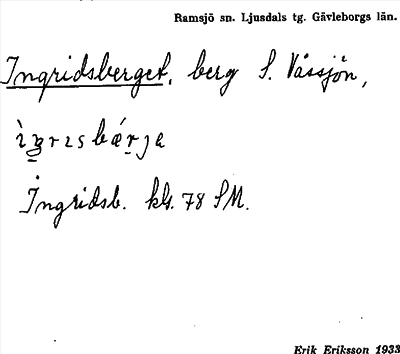 Ramsjö sn. Ljusdals tg. Gävleborgs län.
Ingridsberget, berg S. Våssjön,
Ingridsb. kls. 78 SM.
Erik Eriksson 1933